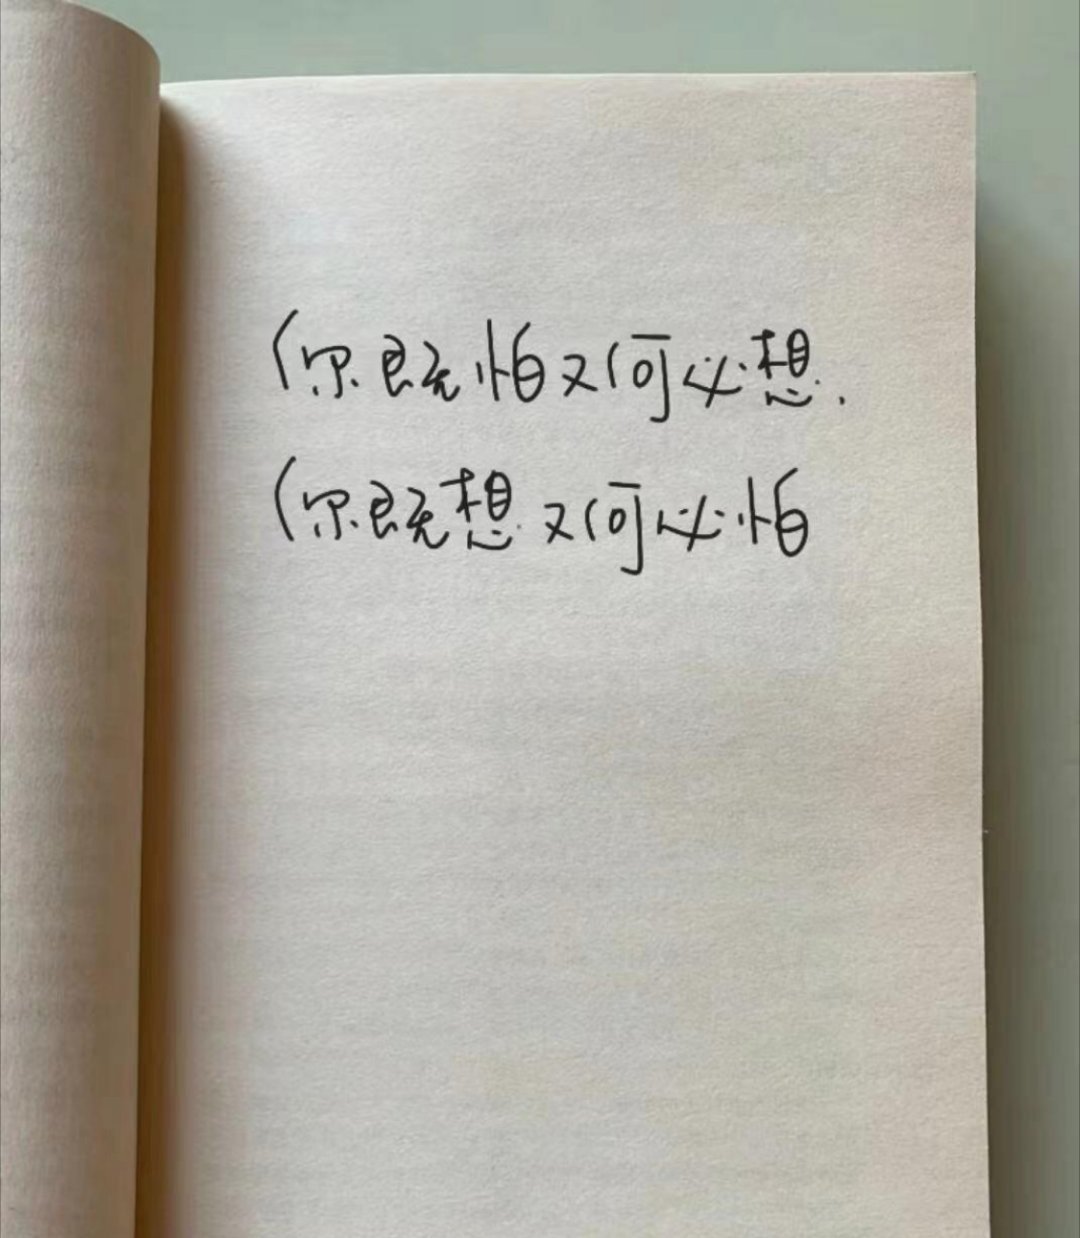 你既怕又何必想.
你既想又何必怕